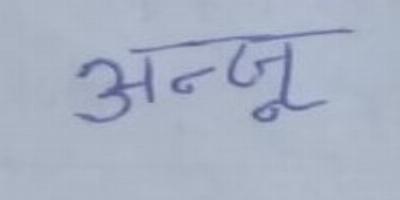 अन्जू